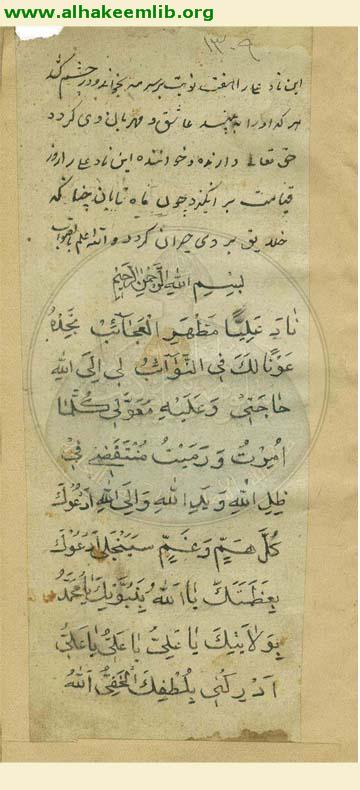 www.alhakeemlib.org
١٣٠٩
این ناد علی را هفت نوبت بر سرمه بخواند و در چشم کشد
هر که او را به بیند عاشق و مهربان وی کردد
حق تعالی دارنده و خواننده این ناد علی را روز
قیامت بر انکیزد چون ماه تابان چنانکه
خلایق بر وی حیران کردد و الله اعلم بالصواب
بِسْمِ اللهِ الرَّحْمنِ الرَّحِیمِ
نَادِ عَلِیًّا مَظْهَرِ الْعَجَآئِبْ تَجِدْهُ
عَوْنًا لَكَ فِی النَّوَآئِبْ لِی اِلَی اللهِ
حَاجَتِی وَعَلَیْهِ مُعَوَّلِی كُلَّمَا
اُمِرْتُ وَرَمَیْتُ مُنْتَقَضِی فِی
ظِلِّ اللهِ وَیَدِ اللهِ وَاِلَی اللهِ اَدْعُوكَ
كُلَّ هَمٍّ وَغَمٍّ سَیَنْجَلِی اَدْعُوكَ
بِعَظَمَتِكَ یَا اَللهُ بِنُبُوَّتِكَ یَا مُحَمَّدُ
بِوَلَایَتِكَ یَا عَلِیُّ یَا عَلِیُّ یَا عَلِیُّ
اَدْرِكْنِی بِلُطْفِكَ الْخَفِیُّ اَللهُ